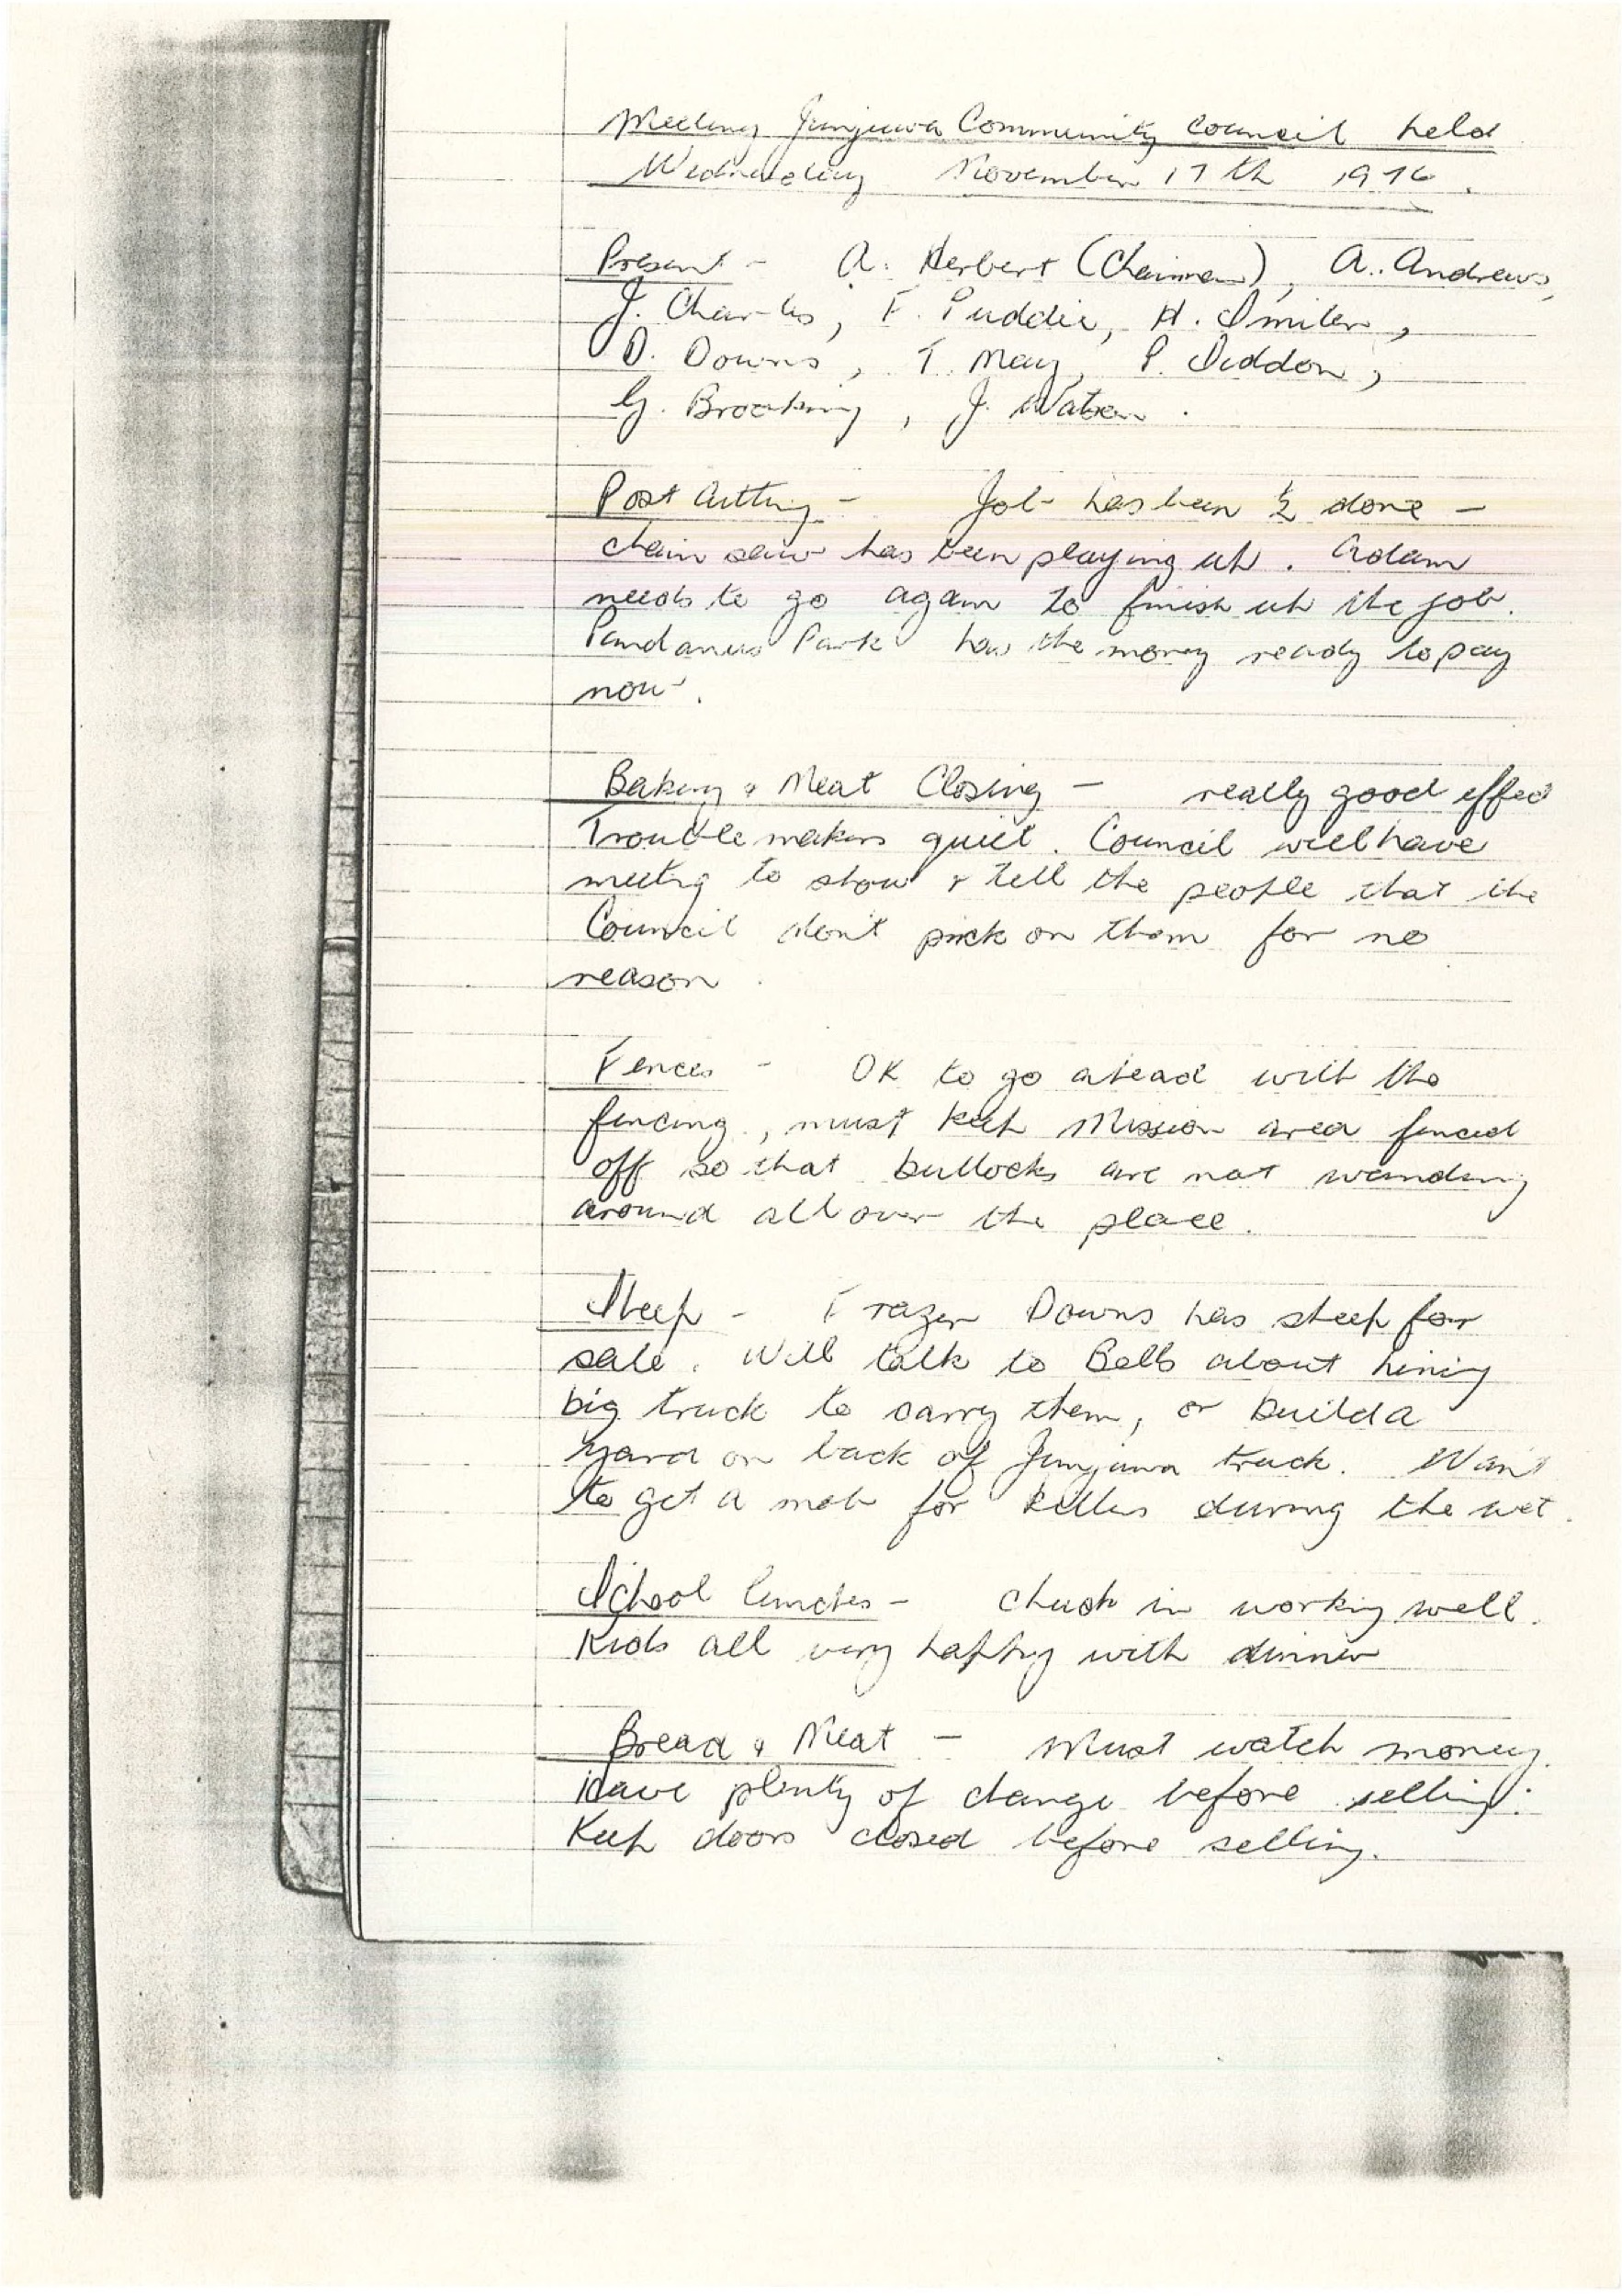 Meeting Junjuwa Community Council held
Wednesday November 17th 1976.
Present - A. Herbert (Chairman), A. Andrews,
J. Charles, F. Puddie, H. Smiler,
D. Downs, T. May, P. Siddon,
G. Brooking, J. Watson.
Post Cutting - Job has been ½ done -
chain saw has been playing up. Adam
needs to go again to finish up the job.
Pandanus Park has the money ready to pay
now.
Baking & Meat Closing - really good effect
Trouble makers quiet. Council will have
meeting to show & tell the people that the
Council don't pick on them for no
reason.
Fences - OK to go ahead with the
fencing, must keep Mission area fenced
off so that bullocks are not wandering
around all over the place.
Sheep - Frazer Downs has sheep for
sale. Will talk to Bells about hiring
big truck to carry them, or build a
yard on back of Junjuwa truck. Want
to get a mob for killers during the wet.
School lunches - chuck in working well.
Kids all very happy with dinner
Bread & Meat - Must watch money.
Have plenty of change before selling.
Keep doors closed before selling.